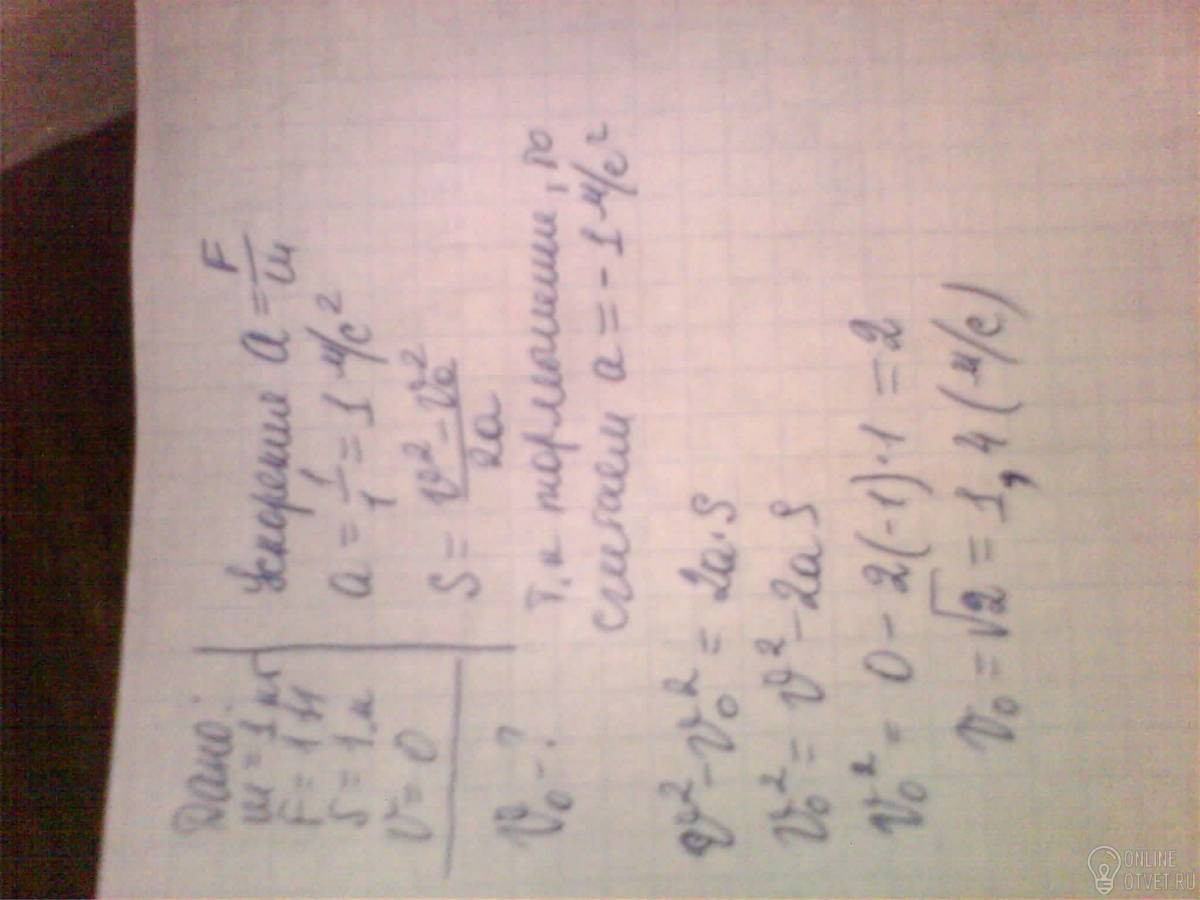 Дано:
m = 1 кг
F = 1 Н
S = 1 м
v = 0
v₀ - ?
Ускорение a = F/m
a = 1/1 = 1 м/с²
S = v² - v₀²/2a
Т.к торможение, то
считаем a = - 1 м/с²
v² - v₀² = 2a·S
v₀² = v² - 2aS
v₀² = 0 - 2(-1)·1 = 2
v₀ = √2 = 1,4 (м/с)
ONLINE
OTVET.RU